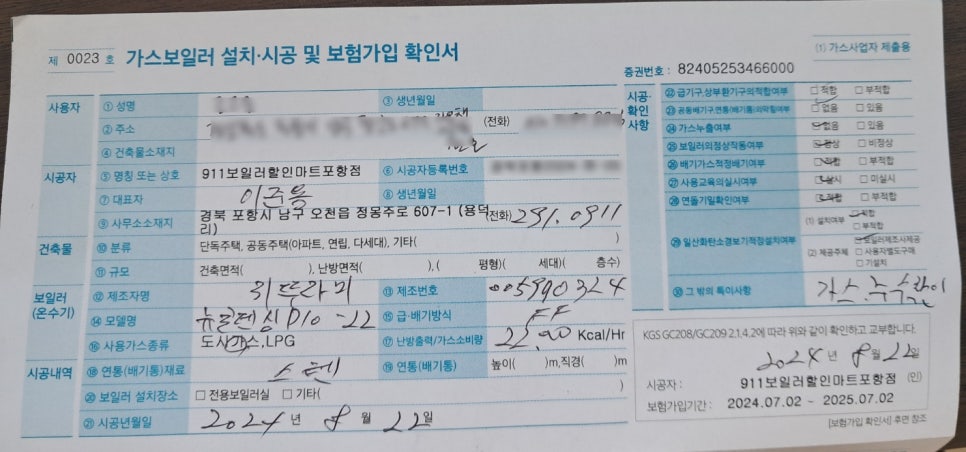 제 0023 호 가스보일러 설치·시공 및 보험가입 확인서
(1) 가스사업자 제출용
증권번호 : 82405253466000
사용자
① 성명
③ 생년월일
② 주소
(전화)
④ 건축물소재지
시공자
⑤ 명칭 또는 상호 911보일러할인마트포항점
⑥ 시공자등록번호
⑦ 대표자
⑧ 생년월일
⑨ 사무소소재지 경북 포항시 남구 오천읍 정몽주로 607-1 (용덕리)
(전화) 291.0911
건축물
⑩ 분류 단독주택, 공동주택(아파트, 연립, 다세대), 기타( )
⑪ 규모 건축면적( ), 난방면적( ), ( 평형)( 세대)( 층수)
보일러 (온수기)
⑫ 제조자명 귀뚜라미
⑬ 제조번호 005990324
⑭ 모델명
⑮ 급·배기방식 FF
⑯ 사용가스종류 도시가스, LPG
⑰ 난방출력/가스소비량 22,00 Kcal/Hr
시공내역
⑱ 연통(배기통)재료 스텐
⑲ 연통(배기통) 높이( )m, 직경( )m
⑳ 보일러 설치장소 □ 전용보일러실 □ 기타( )
㉑ 시공년월일 2024 년 8 월 22일
시공·확인사항
㉒ 급기구,상부환기구의적합여부 □ 적합 □ 부적합
㉓ □ 없음 □ 있음
㉔ 가스누출여부 □ 없음 □ 있음
㉕ 보일러의정상작동여부 □ 정상 □ 비정상
㉖ 배기가스적정배기여부 □ 적합 □ 부적합
㉗ 사용교육의실시여부 □ 실시 □ 미실시
㉘ 연돌기밀확인여부 □ 적합 □ 부적합
㉙ 일산화탄소경보기적정설치여부
(1) 설치여부 □ 적합 □ 부적합
(2) 제공주체 □ 보일러제조사제공 □ 사용자별도구매 □ 기설치
㉚ 그 밖의 특이사항
KGS GC208/GC209 2.1.4.2에 따라 위와 같이 확인하고 교부합니다.
2024 년 8 월 22일
시공자 : 911보일러할인마트포항점 (인)
보험가입기간 : 2024.07.02 - 2025.07.02
[보험가입 확인서] 후면 참조